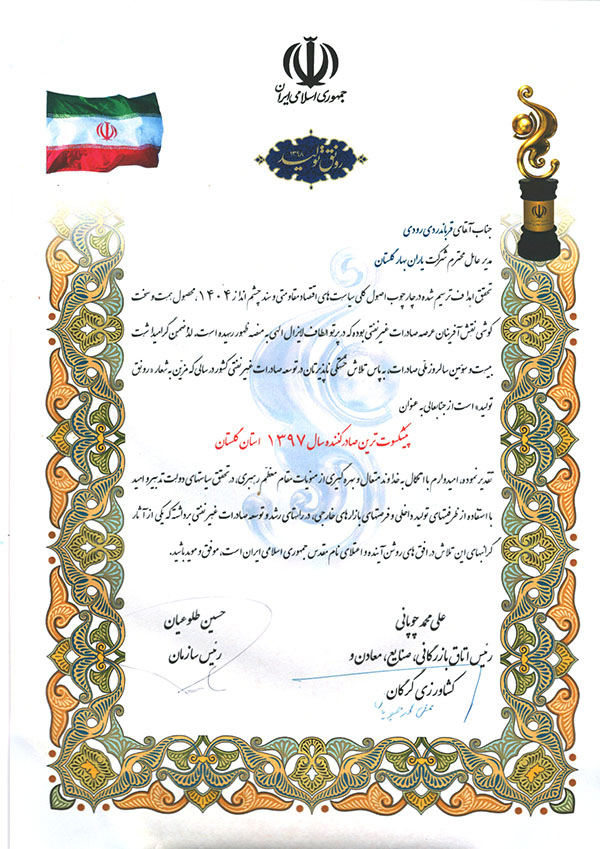 جمهوری اسلامی ایران
رونق تولید
۱۳۹۸
جناب آقای قرباندردی رودی
مدیر عامل محترم شرکت یاران بهار گلستان
تحقق اهداف ترسیم شده در چارچوب اصول کلی سیاست های اقتصاد مقاومتی و سند چشم انداز ۱۴۰۴، محصول همت و سخت
کوشی نقش آفرینان عرصه صادرات غیر نفتی بوده که در پرتو الطاف لایزال الهی به منصه ظهور رسیده است. لذا ضمن گرامیداشت
بیست و سومین سالروز ملی صادرات، به پاس تلاش خستگی ناپذیرتان در توسعه صادرات غیر نفتی کشور در سالی که مزین به شعار « رونق
تولید» است از جنابعالی به عنوان
پیشکسوت ترین صادرکننده سال ۱۳۹۷ استان گلستان
تقدیر نموده، امیدوارم با اتکال به خداوند متعال و بهره گیری از منویات مقام معظم رهبری، در تحقق سیاستهای دولت تدبیر و امید
با استفاده از ظرفیتهای تولید داخلی و فرصتهای بازارهای خارجی، در راستای رشد و توسعه صادرات غیر نفتی برداشته که یکی از آثار
گرانبهای این تلاش در افق های روشن آینده و اعتلای نام مقدس جمهوری اسلامی ایران است، موفق و موید باشید.
علی محمد چوپانی
رئیس اتاق بازرگانی، صنایع، معادن و
کشاورزی گرگان
حسین طلوعیان
رئیس سازمان